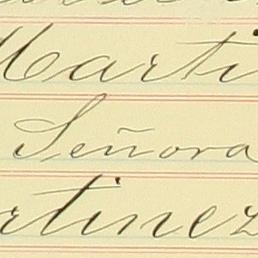 Marti
Señora
rtinez